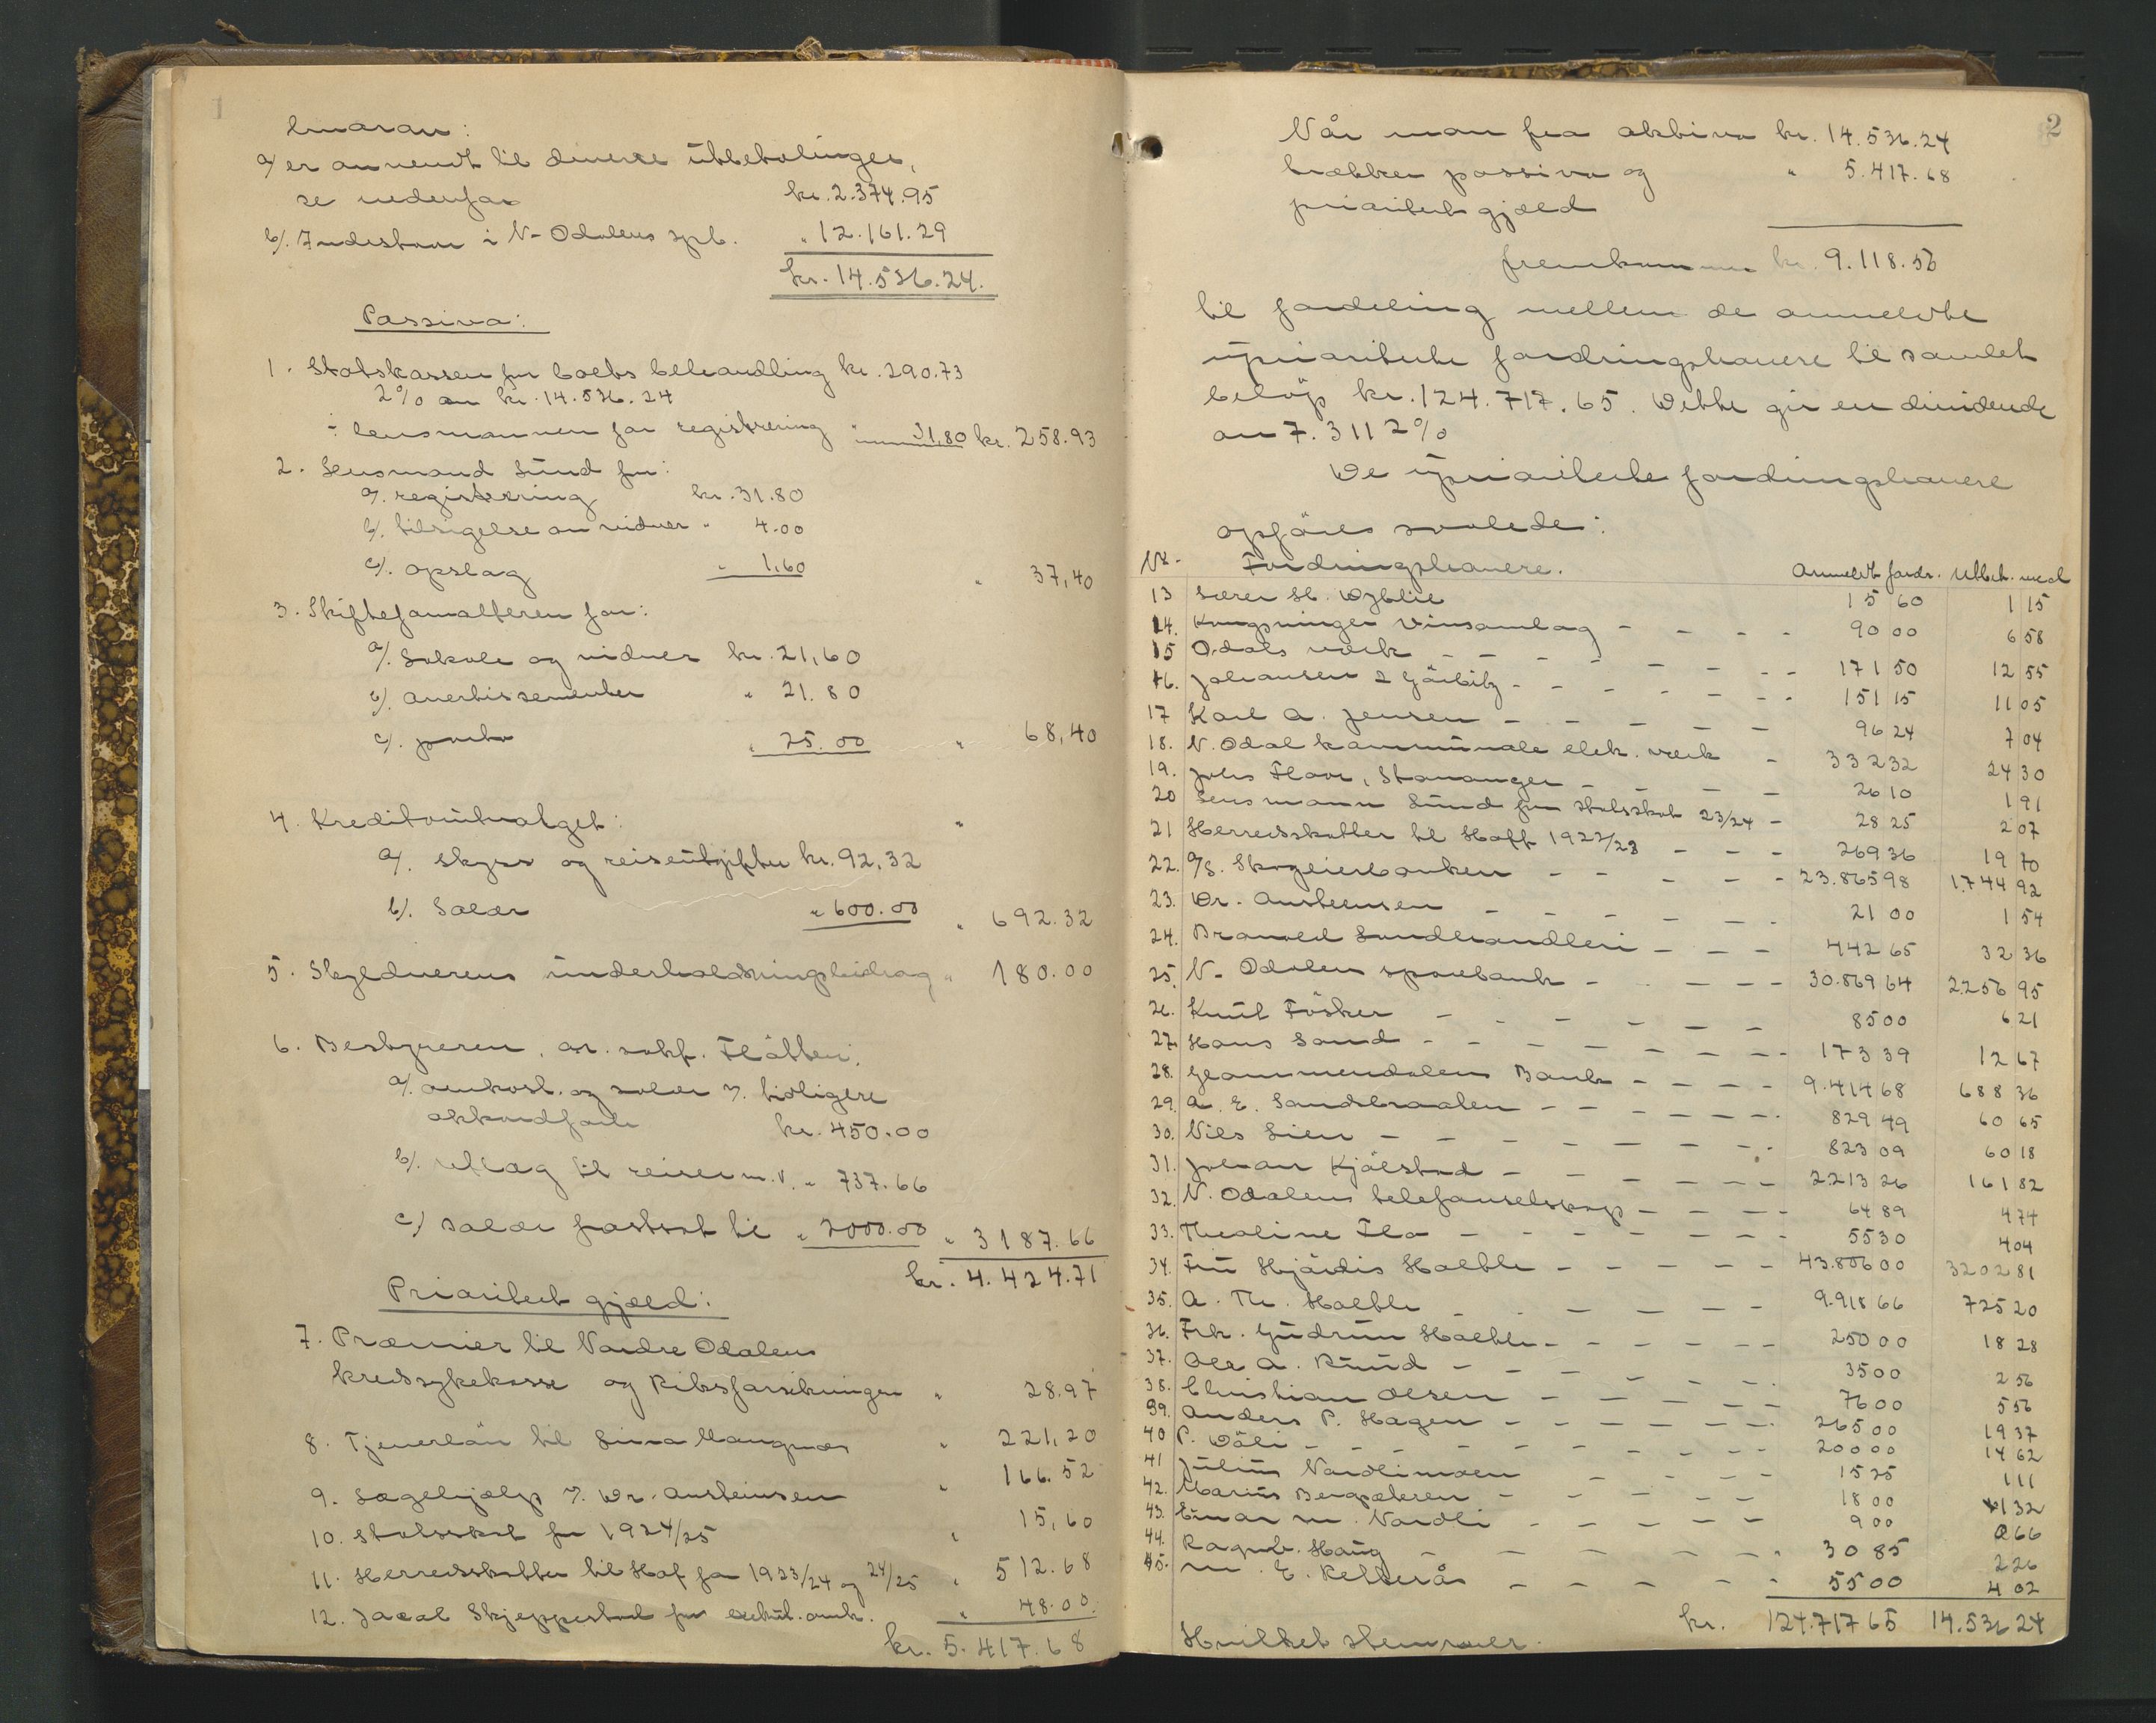 1
hvorav:
a/ er anvendt til diverse utbetalinger,
se nedenfor kr. 2.374.95
b/. Indestaar i N-Odalens spb. " 12.161.29
kr. 14.536.24.
Passiva:
1. Statskassen for boets behandling kr. 290.73
2% av kr. 14.536.24
÷ lensmannen for registrering " 31,80 kr. 258.93
2. Lensmand Lund for:
a/. registrering kr. 31.80
b/. tilsigelse av vidner " 4.00
c/. opslag " 1.60 " 37,40
3. Skifteforvalteren for:
a/. Lokale og vidner kr. 21,60
b/. avertissementer " 21.80
c/. porto " 25.00 " 68,40
4. Kreditorutvalget: "
a/. skyss og reiseutgifter kr. 92,32
b/. Salær " 600.00 " 692.32
5. Skyldnerens underholdningsbidrag " 180.00
6. Bestyreren, or. sakf. Flåtten:
a/. omkost. og salær v. tidligere
akkordfors. kr. 450.00
b/. utlæg til reiser m.v. " 737.66
c/ salær fastsat til " 2000.00 " 3187.66
kr. 4.424.71
Prioritert gjæld:
7. Præmier til Nordre Odalens
kredssykekasse og Riksforsikringen " 28.97
8. Tjenerlön til Lina Mangnæs " 221,20
9. Lægehjælp v. Dr. Austeinsen " 166.52
10. Statsskat for 1924/25 " 15,60
11. Herredsskatter til Hof for 1923/24 og 24/25 " 512.68
12. Jacob Skjeppestad for exekut. omk. " 48.00.
kr. 5.417.68
2
Når man fra aktiva kr. 14.536.24
trækker passiva og " 5.417.68
prioritert gjæld
fremkommer kr. 9.118.56
til fordeling mellem de anmeldte
upriorterte fordringshavere til samlet
belöp kr. 124.717.65. Dette gir en dividende
av 7.3112%
De uprioriterte fordringshavere
opföres saalede:
Nr. Fordringshavere. Anmeldt fordr. Utbet. med
13 Sören H. Dyblie 15 60 1 15
14. Kongsvinger Vinsamlag 90 00 6 58
15 Odals verk 171 50 12 55
16. Johansen & Görbitz 151 15 11 05
17 Karl A. Jensen 96 24 7 04
18. N. Odal kommunale elek. verk 332 32 24 30
19. Johs Floor, Stavanger 26 10 1 91
20 Lensmann Lund for statsskat 23/24 28 25 2 07
21 Herredsskatter til Hoff 1922/23 269 36 19 70
22. A/S. Skogeierbanken 23.865 98 1.744 92
23. Dr. Austeinsen 21 00 1 54
24. Branvold Landhandleri 442 65 32 36
25. N- Odalen sparebank 30.869 64 2.256 95
26. Knut Fösker 85 00 6 21
27. Hans Sand 173 39 12 67
28. Glommendalens Bank 9.414 68 688 36
29. A. E. Sandbraaten 829 49 60 65
30. Nils Lien 823 09 60 18
31. Johan Kjölstad 2.213 26 161 82
32. N. Odalens telefonselskap 64 89 4 74
33. Thealine Flo 55 30 4 04
34. Fru Hjördis Holth 43.806 00 3202 81
35. A. Th. Holth 9.918 66 725 20
36. Frk. Gudrun Holth 250 00 18 28
37. Ole A. Ruud 35 00 2 56
38. Christian Olsen 76 00 5 56
39. Anders P. Hagen 265 00 19 37
40 P. Döli 200 00 14 62
41 Julius Nordlimoen 15 25 1 11
42. Marius Bergsæteren 18 00 1 32
43. Einar M. Nordli 9 00 0 66
44. Ragnh. Haug 30 85 2 26
45. M. E. Kelterås 55 00 4 02
kr. 124.717 65 14.536 24
Hvilket stemmer.